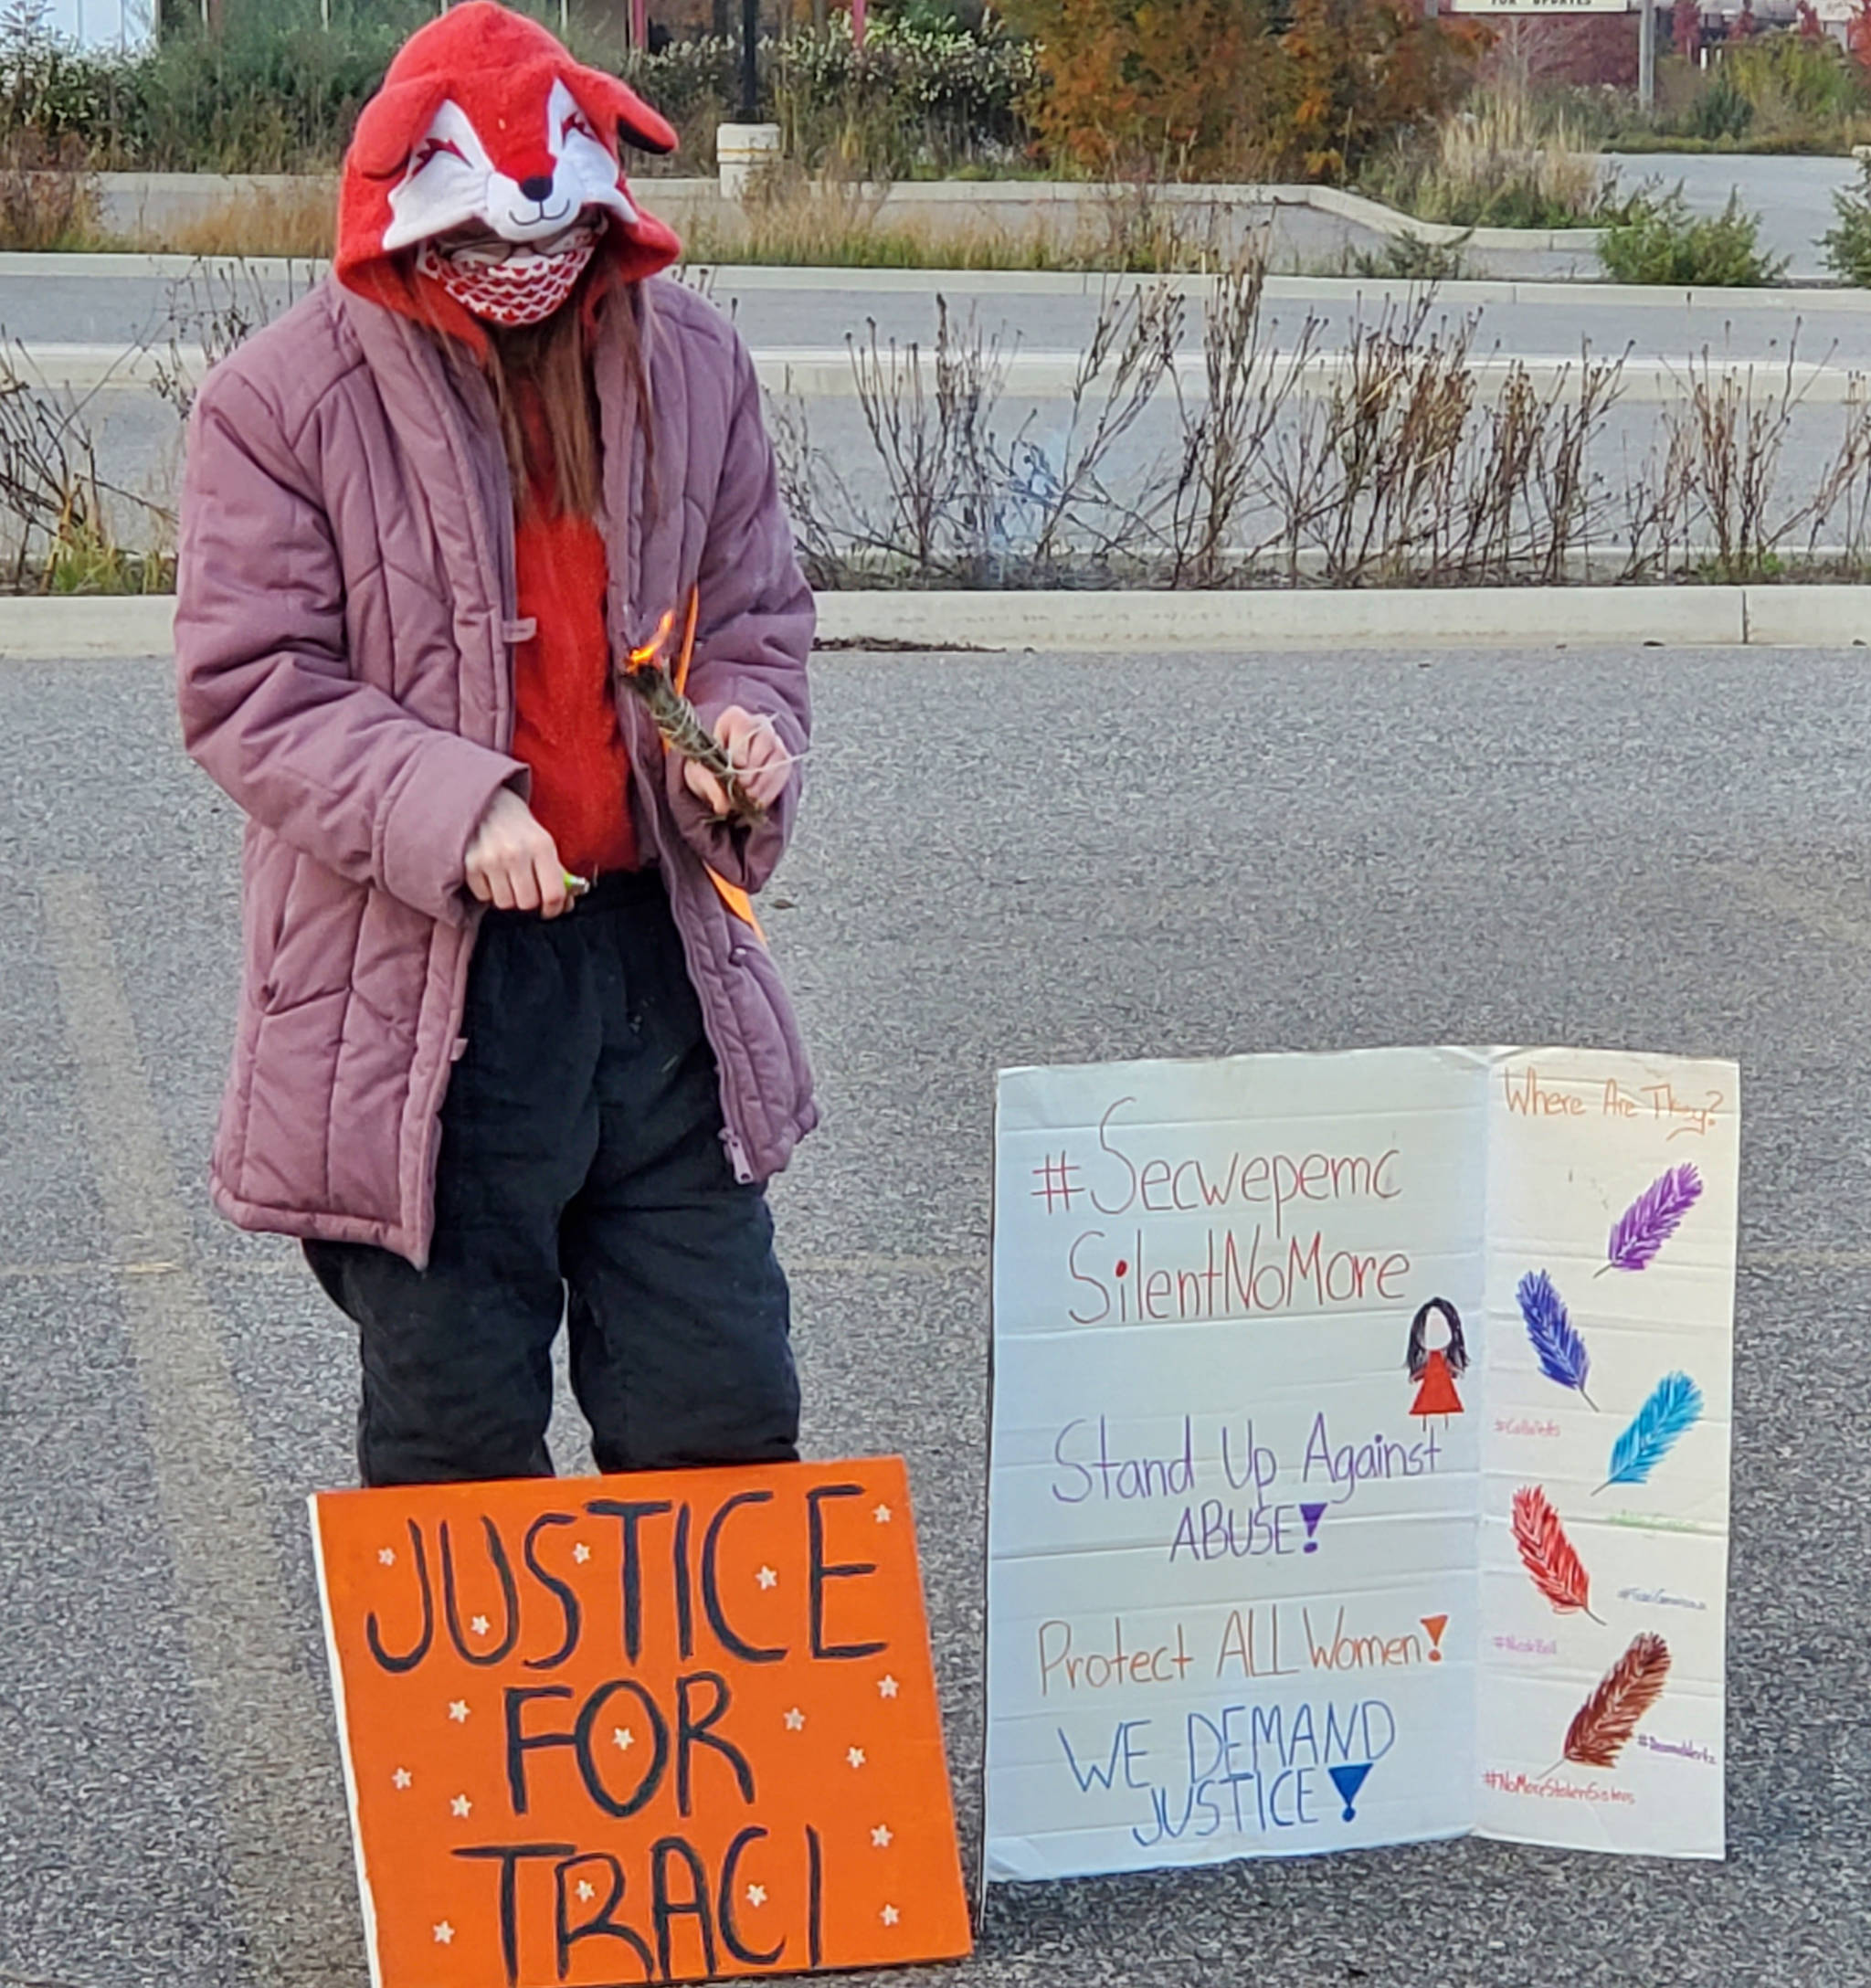 FOR UPDATES
JUSTICE
FOR
TRACI
#Secwepemc
SilentNoMore
Stand Up Against
ABUSE!
Protect ALL Women!
WE DEMAND
JUSTICE!
Where Are They?
#NicoleBell
#NoMoreStolenSisters